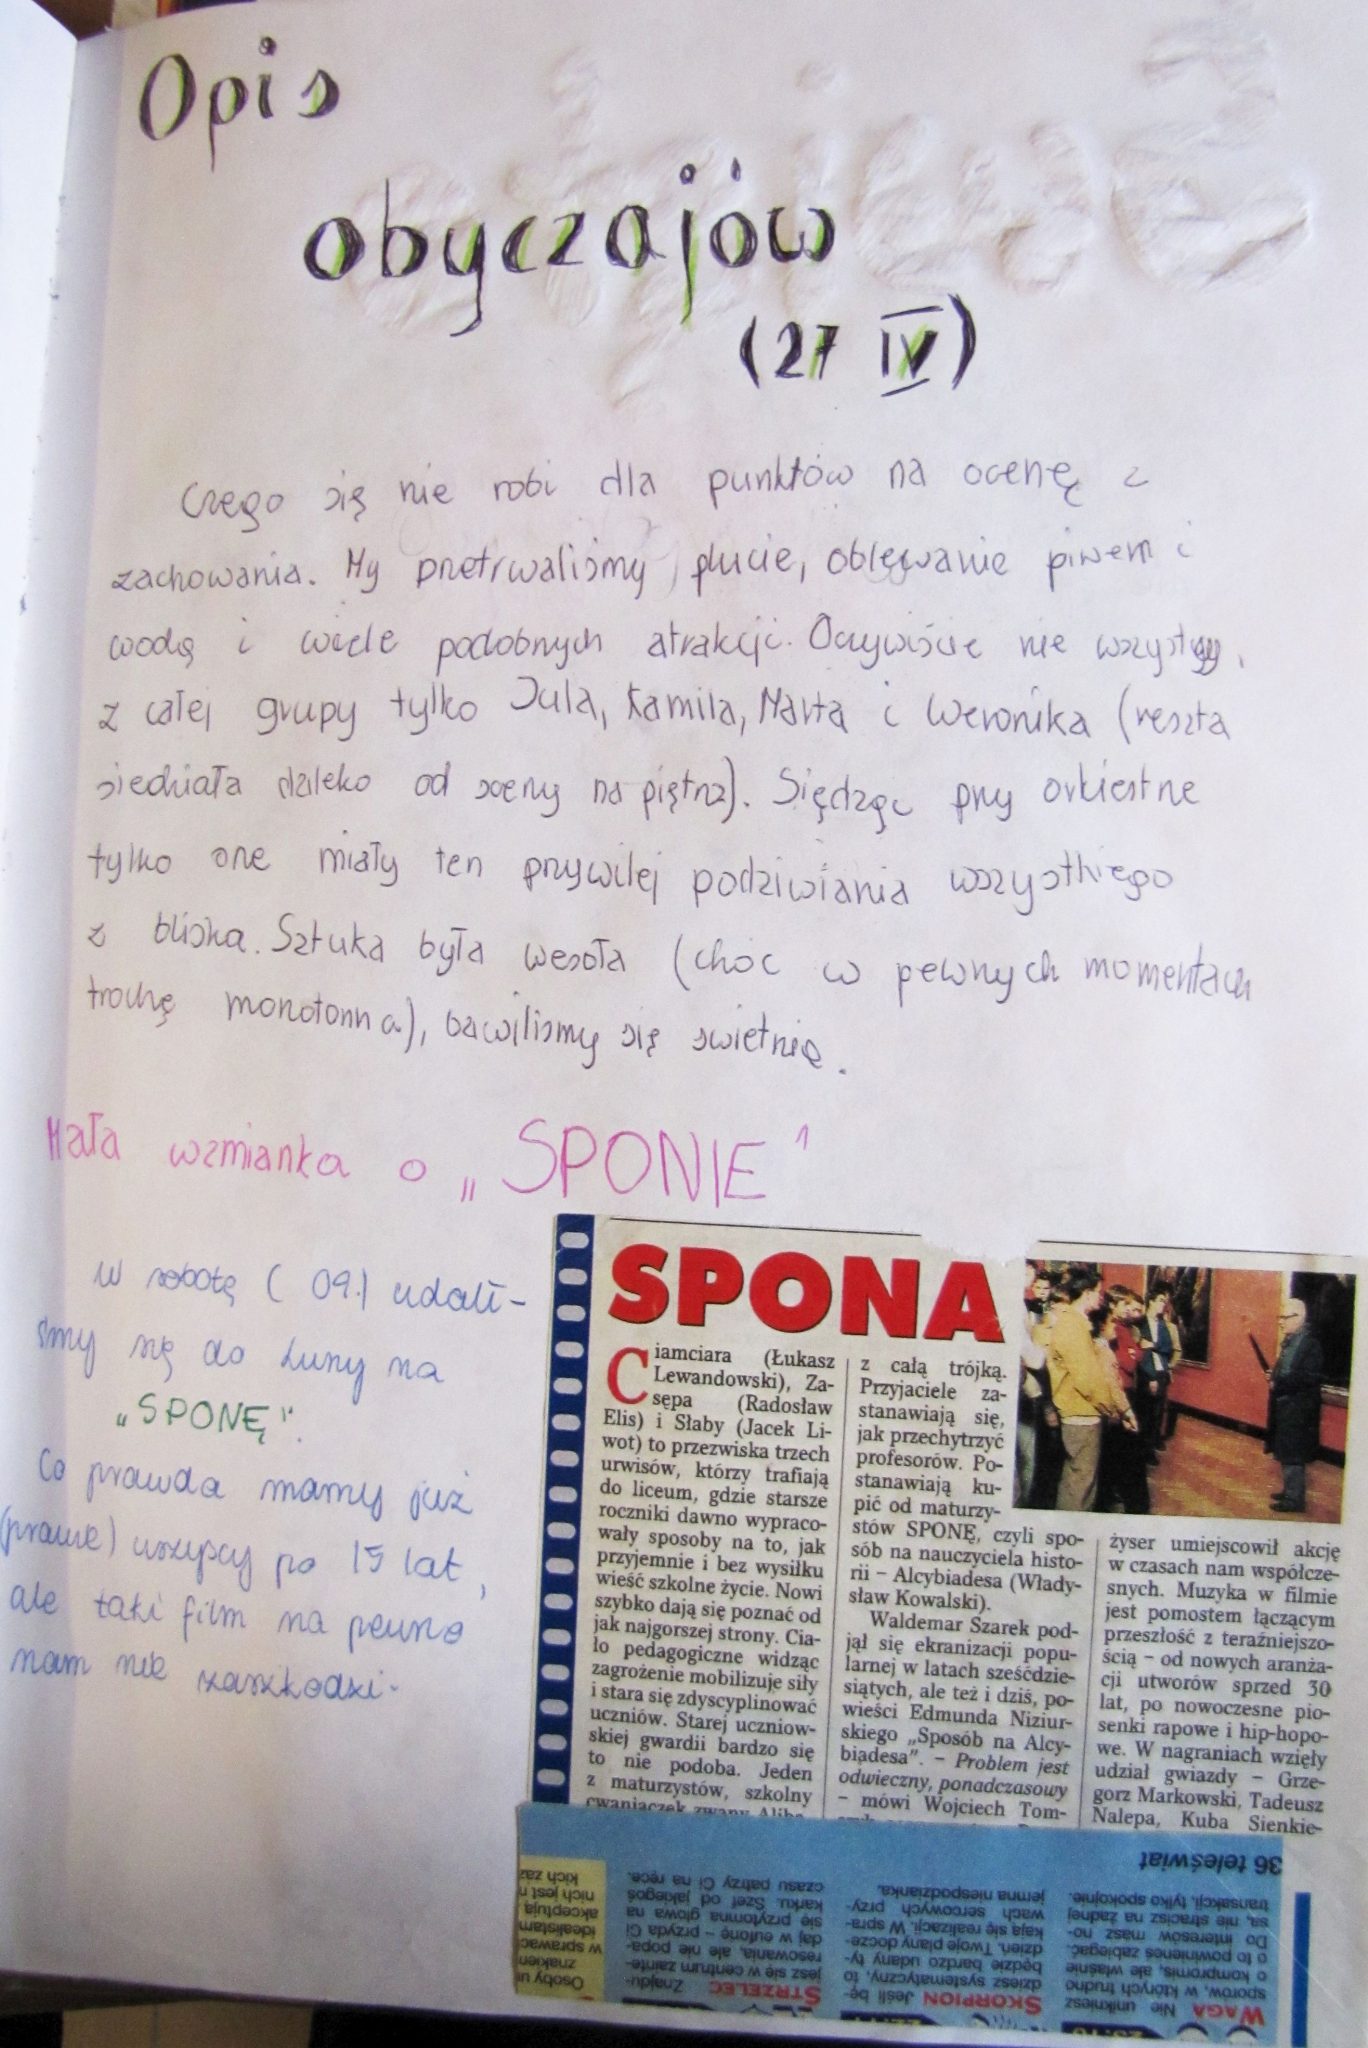 Opis
obyczajów
(27 IV)
Czego się nie robi dla punktów na ocenę z
zachowania. My przetrwaliśmy plucie, oblewanie piwem i
wodą i wiele podobnych atrakcji. Oczywiście nie wszyscy,
z całej grupy tylko Jula, Kamila, Marta i Weronika (reszta
siedziała daleko od sceny na piętrz). Siędząc przy orkiestrze
tylko one miały ten przywilej podziwiania wszystkiego
z bliska. Sztuka była wesoła (choc w pewnych momentach
trochę monotonna), bawiliśmy się swietnie.
Mała wzmianka o „SPONIE"
W sobotę (09.) udali-
śmy się do Luny na
„SPONĘ".
Co prawda mamy już
(prawie) wszyscy po 15 lat,
ale taki film na pewno
nam nie zaszkodzi.
SPONA
Ciamciara (Łukasz
Lewandowski), Za-
sępa (Radosław
Elis) i Słaby (Jacek Li-
wot) to przezwiska trzech
urwisów, którzy trafiają
do liceum, gdzie starsze
roczniki dawno wypraco-
wały sposoby na to, jak
przyjemnie i bez wysiłku
wieść szkolne życie. Nowi
szybko dają się poznać od
jak najgorszej strony. Cia-
ło pedagogiczne widząc
zagrożenie mobilizuje siły
i stara się zdyscyplinować
uczniów. Starej uczniow-
skiej gwardii bardzo się
to nie podoba. Jeden
z maturzystów, szkolny
cwaniaczek zwany Aliba-
z całą trójką.
Przyjaciele za-
stanawiają się,
jak przechytrzyć
profesorów. Po-
stanawiają ku-
pić od maturzy-
stów SPONĘ, czyli spo-
sób na nauczyciela histo-
rii – Alcybiadesa (Włady-
sław Kowalski).
Waldemar Szarek pod-
jął się ekranizacji popu-
larnej w latach sześćdzie-
siątych, ale też i dziś, po-
wieści Edmunda Niziur-
skiego „Sposób na Alcy-
biadesa". – Problem jest
odwieczny, ponadczasowy
– mówi Wojciech Tom-
żyser umiejscowił akcję
w czasach nam współcze-
snych. Muzyka w filmie
jest pomostem łączącym
przeszłość z teraźniejszo-
ścią – od nowych aranża-
cji utworów sprzed 30
lat, po nowoczesne pio-
senki rapowe i hip-hopo-
we. W nagraniach wzięły
udział gwiazdy – Grze-
gorz Markowski, Tadeusz
Nalepa, Kuba Sienkie-
36 teleświat
WAGA Nie unikniesz
sporów, w których trudno
o kompromis, ale właśnie
o to powinieneś zabiegać.
Do interesów masz no-
sa, nie stracisz na żadnej
transakcji, tylko spokojnie.
SKORPION Jeśli bę-
dziesz systematyczny, to
będzie bardzo udany ty-
dzień. Twoje plany docze-
kają się realizacji. W spra-
wach sercowych przy-
jemna niespodzianka.
STRZELEC Znajdu-
jesz się w centrum zainte-
resowania, ale nie popa-
daj w euforię – przyda Ci
się przytomna głowa na
karku. Szef od jakiegoś
czasu patrzy Ci na ręce.
Osoby
znakiem
w sprawac
idealistam
akceptują
nich jest
kich